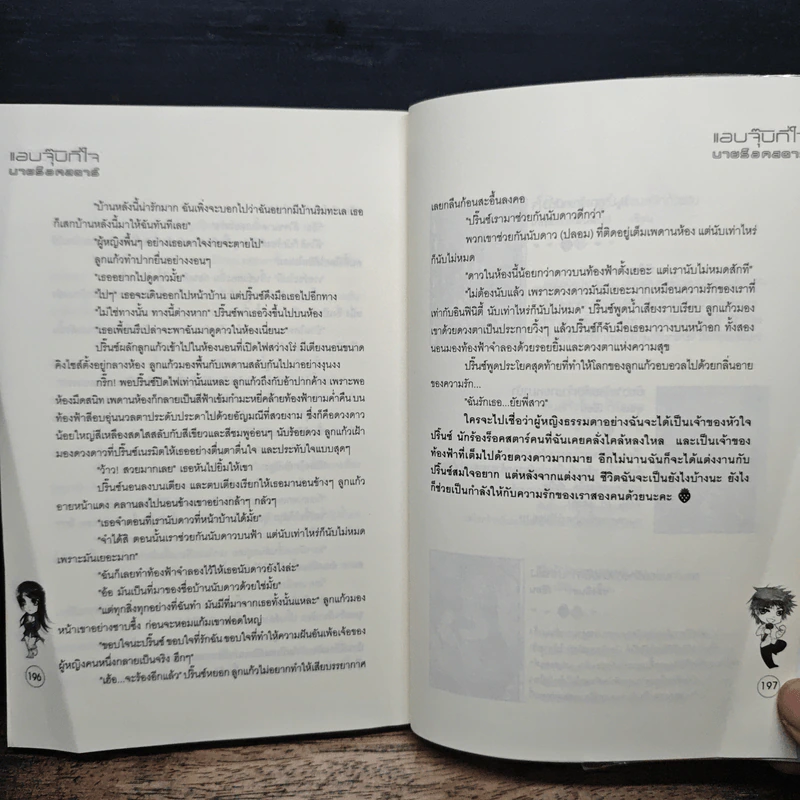 แอบจุ๊บที่ใจ
นายร็อคสตาร์
"บ้านหลังนี้น่ารักมาก ฉันเพิ่งจะบอกไปว่าฉันอยากมีบ้านริมทะเล เธอ
ก็เสกบ้านหลังนี้มาให้ฉันทันทีเลย"
"ผู้หญิงพื้นๆ อย่างเธอเดาใจง่ายจะตายไป"
ลูกแก้วทำปากยื่นอย่างงอนๆ
"เธออยากไปดูดาวมั้ย"
"ไปๆ" เธอจะเดินออกไปหน้าบ้าน แต่ปริ๊นซ์ดึงมือเธอไปอีกทาง
"ไม่ใช่ทางนั้น ทางนี้ต่างหาก" ปริ๊นซ์พาเธอวิ่งขึ้นไปบนห้อง
"เธอเพี้ยนรึเปล่าจะพาฉันมาดูดาวในห้องเนี่ยนะ"
ปริ๊นซ์ผลักลูกแก้วเข้าไปในห้องนอนที่เปิดไฟสว่างโร่ มีเตียงนอนขนาด
คิงไซส์ตั้งอยู่กลางห้อง ลูกแก้วมองพื้นกับเพดานสลับกันไปมาอย่างงุนงง
กริ๊ก! พอปริ๊นซ์ปิดไฟเท่านั้นแหละ ลูกแก้วถึงกับอ้าปากค้าง เพราะพอ
ห้องมืดสนิท เพดานห้องก็กลายเป็นสีฟ้าเข้มกำมะหยี่คล้ายท้องฟ้ายามค่ำคืน บน
ท้องฟ้าสีอบอุ่นนวลตาประดับประดาไปด้วยอัญมณีที่สวยงาม ซึ่งก็คือดวงดาว
น้อยใหญ่สีเหลืองสดใสสลับกับสีเขียวและสีชมพูอ่อนๆ นับร้อยดวง ลูกแก้วเฝ้า
มองดวงดาวที่ปริ๊นซ์เนรมิตให้เธออย่างตื่นตาตื่นใจ และประทับใจแบบสุดๆ
"ว้าว! สวยมากเลย" เธอหันไปยิ้มให้เขา
ปริ๊นซ์นอนลงบนเตียง และตบเตียงเรียกให้เธอมานอนข้างๆ ลูกแก้ว
อายหน้าแดง คลานลงไปนอนข้างเขาอย่างกล้าๆ กลัวๆ
"เธอจำตอนที่เรานับดาวที่หน้าบ้านได้มั้ย"
"จำได้สิ ตอนนั้นเราช่วยกันนับดาวบนฟ้า แต่นับเท่าไหร่ก็นับไม่หมด
เพราะมันเยอะมาก"
"ฉันก็เลยทำท้องฟ้าจำลองไว้ให้เธอนับดาวยังไงล่ะ"
"อ้อ มันเป็นที่มาของชื่อบ้านนับดาวด้วยใช่มั้ย"
"แต่ทุกสิ่งทุกอย่างที่ฉันทำ มันมีที่มาจากเธอทั้งนั้นแหละ" ลูกแก้วมอง
หน้าเขาอย่างซาบซึ้ง ก่อนจะหอมแก้มเขาฟอดใหญ่
"ขอบใจนะปริ๊นซ์ ขอบใจที่รักฉัน ขอบใจที่ทำให้ความฝันอันเพ้อเจ้อของ
ผู้หญิงคนหนึ่งกลายเป็นจริง ฮึกๆ"
"เฮ้อ...จะร้องอีกแล้ว" ปริ๊นซ์หยอก ลูกแก้วไม่อยากทำให้เสียบรรยากาศ
196
แอบจุ๊บที่ใจ
นายร็อคสตาร์
เลยกลืนก้อนสะอื้นลงคอ
"ปริ๊นซ์เรามาช่วยกันนับดาวดีกว่า"
พวกเขาช่วยกันนับดาว (ปลอม) ที่ติดอยู่เต็มเพดานห้อง แต่นับเท่าไหร่
ก็นับไม่หมด
"ดาวในห้องนี้น้อยกว่าดาวบนท้องฟ้าตั้งเยอะ แต่เรานับไม่หมดสักที"
"ไม่ต้องนับแล้ว เพราะดวงดาวมันมีเยอะมากเหมือนความรักของเราที่
เท่ากับอินฟินิตี้ นับเท่าไหร่ก็นับไม่หมด" ปริ๊นซ์พูดน้ำเสียงราบเรียบ ลูกแก้วมอง
เขาด้วยดวงตาเป็นประกายวิ้งๆ แล้วปริ๊นซ์ก็จับมือเธอมาวางบนหน้าอก ทั้งสอง
นอนมองท้องฟ้าจำลองด้วยรอยยิ้มและดวงตาแห่งความสุข
ปริ๊นซ์พูดประโยคสุดท้ายที่ทำให้โลกของลูกแก้วอบอวลไปด้วยกลิ่นอาย
ของความรัก...
"ฉันรักเธอ...ยัยพี่สาว"
ใครจะไปเชื่อว่าผู้หญิงธรรมดาอย่างฉันจะได้เป็นเจ้าของหัวใจ
ปริ๊นซ์ นักร้องร็อคสตาร์คนที่ฉันเคยคลั่งไคล้หลงใหล และเป็นเจ้าของ
ท้องฟ้าที่เต็มไปด้วยดวงดาวมากมาย อีกไม่นานฉันก็จะได้แต่งงานกับ
ปริ๊นซ์สมใจอยาก แต่หลังจากแต่งงาน ชีวิตฉันจะเป็นยังไงบ้างนะ ยังไง
ก็ช่วยเป็นกำลังให้กับความรักของเราสองคนด้วยนะคะ
197